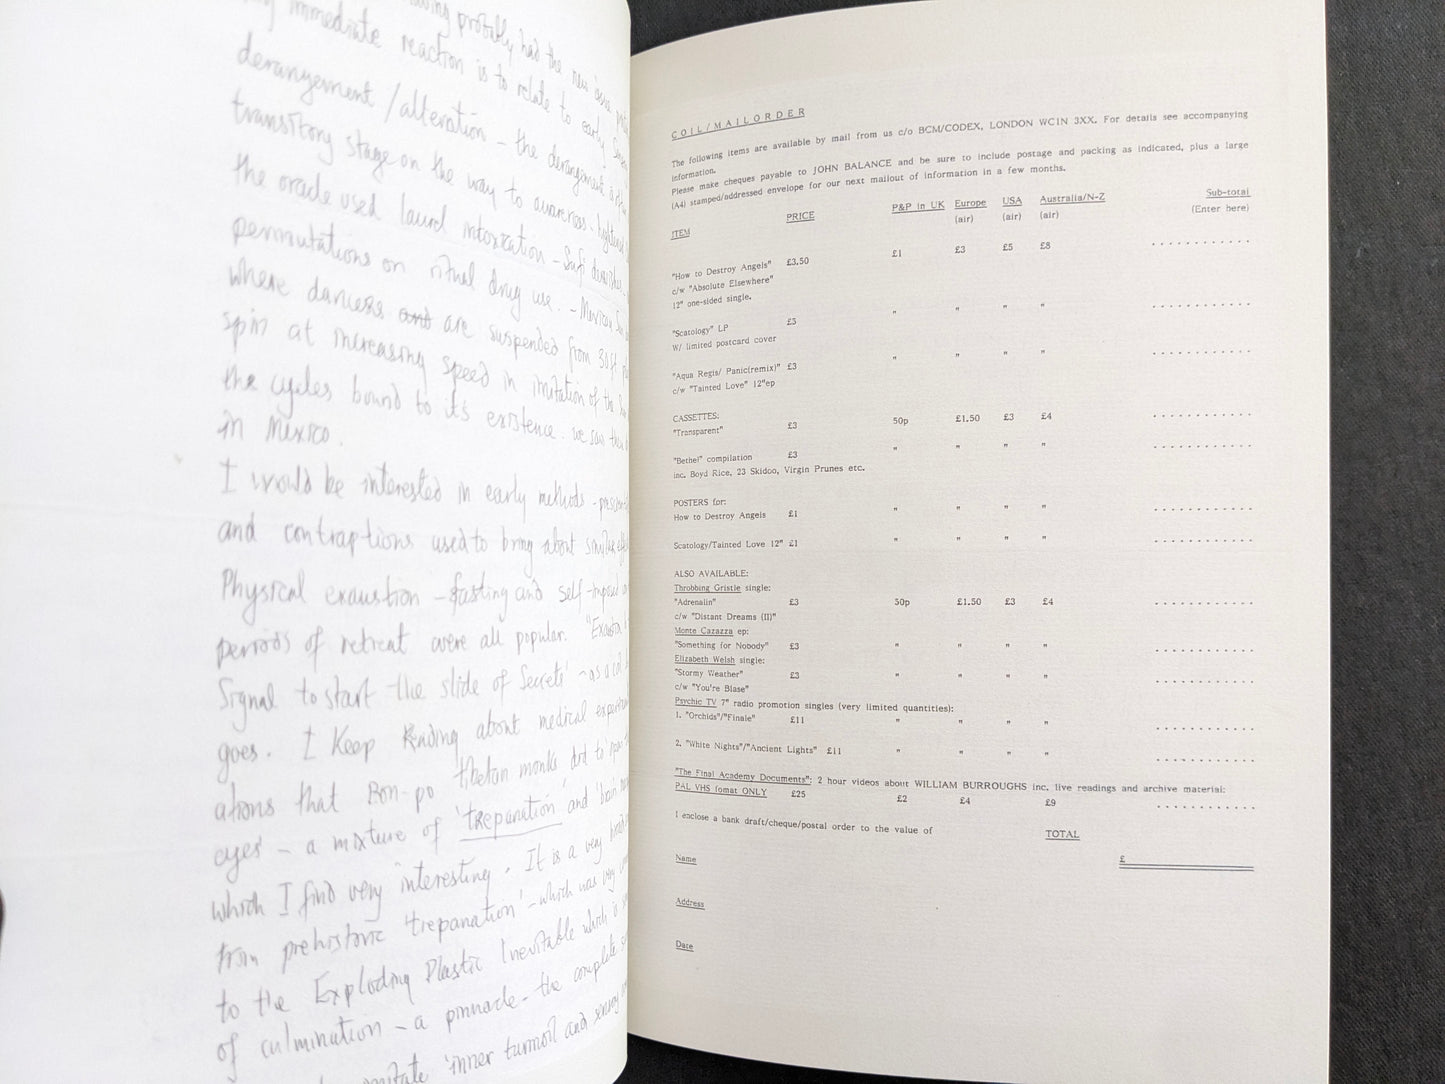 probably had the
immediate reaction is to relate to early
derangement / alteration - the derangement is
transitory stage on the way to awareness.
the oracle used laurel intoxication - Sufi dervishes
permutations on ritual drug use. - Mexican Sun
where dancers and are suspended from 30ft
spin at increasing speed in imitation of the
the cycles bound to it's existence. we saw
in Mexico.
I would be interested in early methods -
and contraptions used to bring about similar
Physical exaustion - fasting and self-imposed
periods of retreat were all popular.
Signal to start the slide of Secrets' - as a
goes. I Keep Reading about medical
ations that Bon-po tibetan monks did to
eyes' - a mixture of 'trepanation' and 'brain
which I find very interesting. It is a very
from prehistoric 'trepanation' - which was very
to the Exploding Plastic Inevitable which is
of culmination - a pinnacle - the complete
'inner turmoil and energy
COIL/MAILORDER
The following items are available by mail from us c/o BCM/CODEX, LONDON WC1N 3XX. For details see accompanying
information.
Please make cheques payable to JOHN BALANCE and be sure to include postage and packing as indicated, plus a large
(A4) stamped/addressed envelope for our next mailout of information in a few months.
ITEM PRICE P&P in UK Europe USA Australia/N-Z Sub-total
(air) (air) (air) (Enter here)
"How to Destroy Angels" £3.50 £1 £3 £5 £8 ............
c/w "Absolute Elsewhere"
12" one-sided single.
"Scatology" LP £5 " " " " ............
W/ limited postcard cover
"Aqua Regis/ Panic(remix)" £3 " " " " ............
c/w "Tainted Love" 12"ep
CASSETTES:
"Transparent" £3 50p £1.50 £3 £4 ............
"Bethel" compilation £3 " " " " ............
inc. Boyd Rice, 23 Skidoo, Virgin Prunes etc.
POSTERS for:
How to Destroy Angels £1 " " " " ............
Scatology/Tainted Love 12" £1 " " " " ............
ALSO AVAILABLE:
Throbbing Gristle single:
"Adrenalin" £3 50p £1.50 £3 £4 ............
c/w "Distant Dreams (II)"
Monte Cazazza ep:
"Something for Nobody" £3 " " " " ............
Elizabeth Welsh single:
"Stormy Weather" £3 " " " " ............
c/w "You're Blase"
Psychic TV 7" radio promotion singles (very limited quantities):
1. "Orchids"/"Finale" £11 " " " " ............
2. "White Nights"/"Ancient Lights" £11 " " " " ............
"The Final Academy Documents": 2 hour videos about WILLIAM BURROUGHS inc. live readings and archive material:
PAL VHS fomat ONLY £25 £2 £4 £9 ............
I enclose a bank draft/cheque/postal order to the value of TOTAL
£
Name
Address
Date